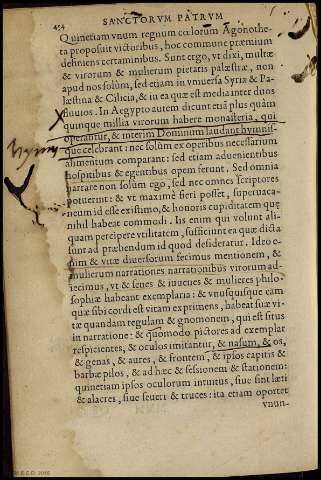 454 SANCTORVM PATRVM
Quinetiam vnum regnum cœlorum Agonothe-
ta proposuit victoribus, hoc commune præmium
definiens certaminibus. Sunt ergo, vt dixi, multæ
& virorum & mulierum pietatis palæstræ, non
apud nos solùm, sed etiam in vniuersa Syria & Pa-
læstina & Cilicia, & in ea quæ est media inter duos
fluuios. In Aegypto autem dicunt etiã plus quàm
quinque millia virorum habere monasteria, qui
operantur, & interim Dominum laudant hymnis-
que celebrant: nec solùm ex operibus necessarium
alimentum comparant: sed etiam aduenientibus
hospitibus & egentibus opem ferunt. Sed omnia
narrare non solùm ego, sed nec omnes scriptores
potuerint: & vt maximè fieri posset, superuaca-
neum id esse existimo, & honoris cupiditatem quę
nihil habeat commodi. Iis enim qui volunt ali-
quam percipere vtilitatem, sufficiunt ea quæ dicta
sunt ad præbendum id quod desideratur. Ideo e-
nim & vitæ diuersorum fecimus mentionem, &
mulierum narrationes narrationibus virorum ad-
iecimus, vt & senes & iuuenes & mulieres philo-
sophiæ habeant exemplaria: & vnusquisque eam
quæ sibi cordi est vitam exprimens, habeat suæ vi-
tæ quandam regulam & gnomonem, qui est situs
in narratione: & quomodo pictores ad exemplar
respicientes, & oculos imitantur, & nasum, & os,
& genas, & aures, & frontem, & ipsos capitis &
barbæ pilos, & ad hæc & sessionem & stationem:
quinetiam ipsos oculorum intuitus, siue sint læti
& alacres, siue seueri & truces: ita etiam oportet
vnun-